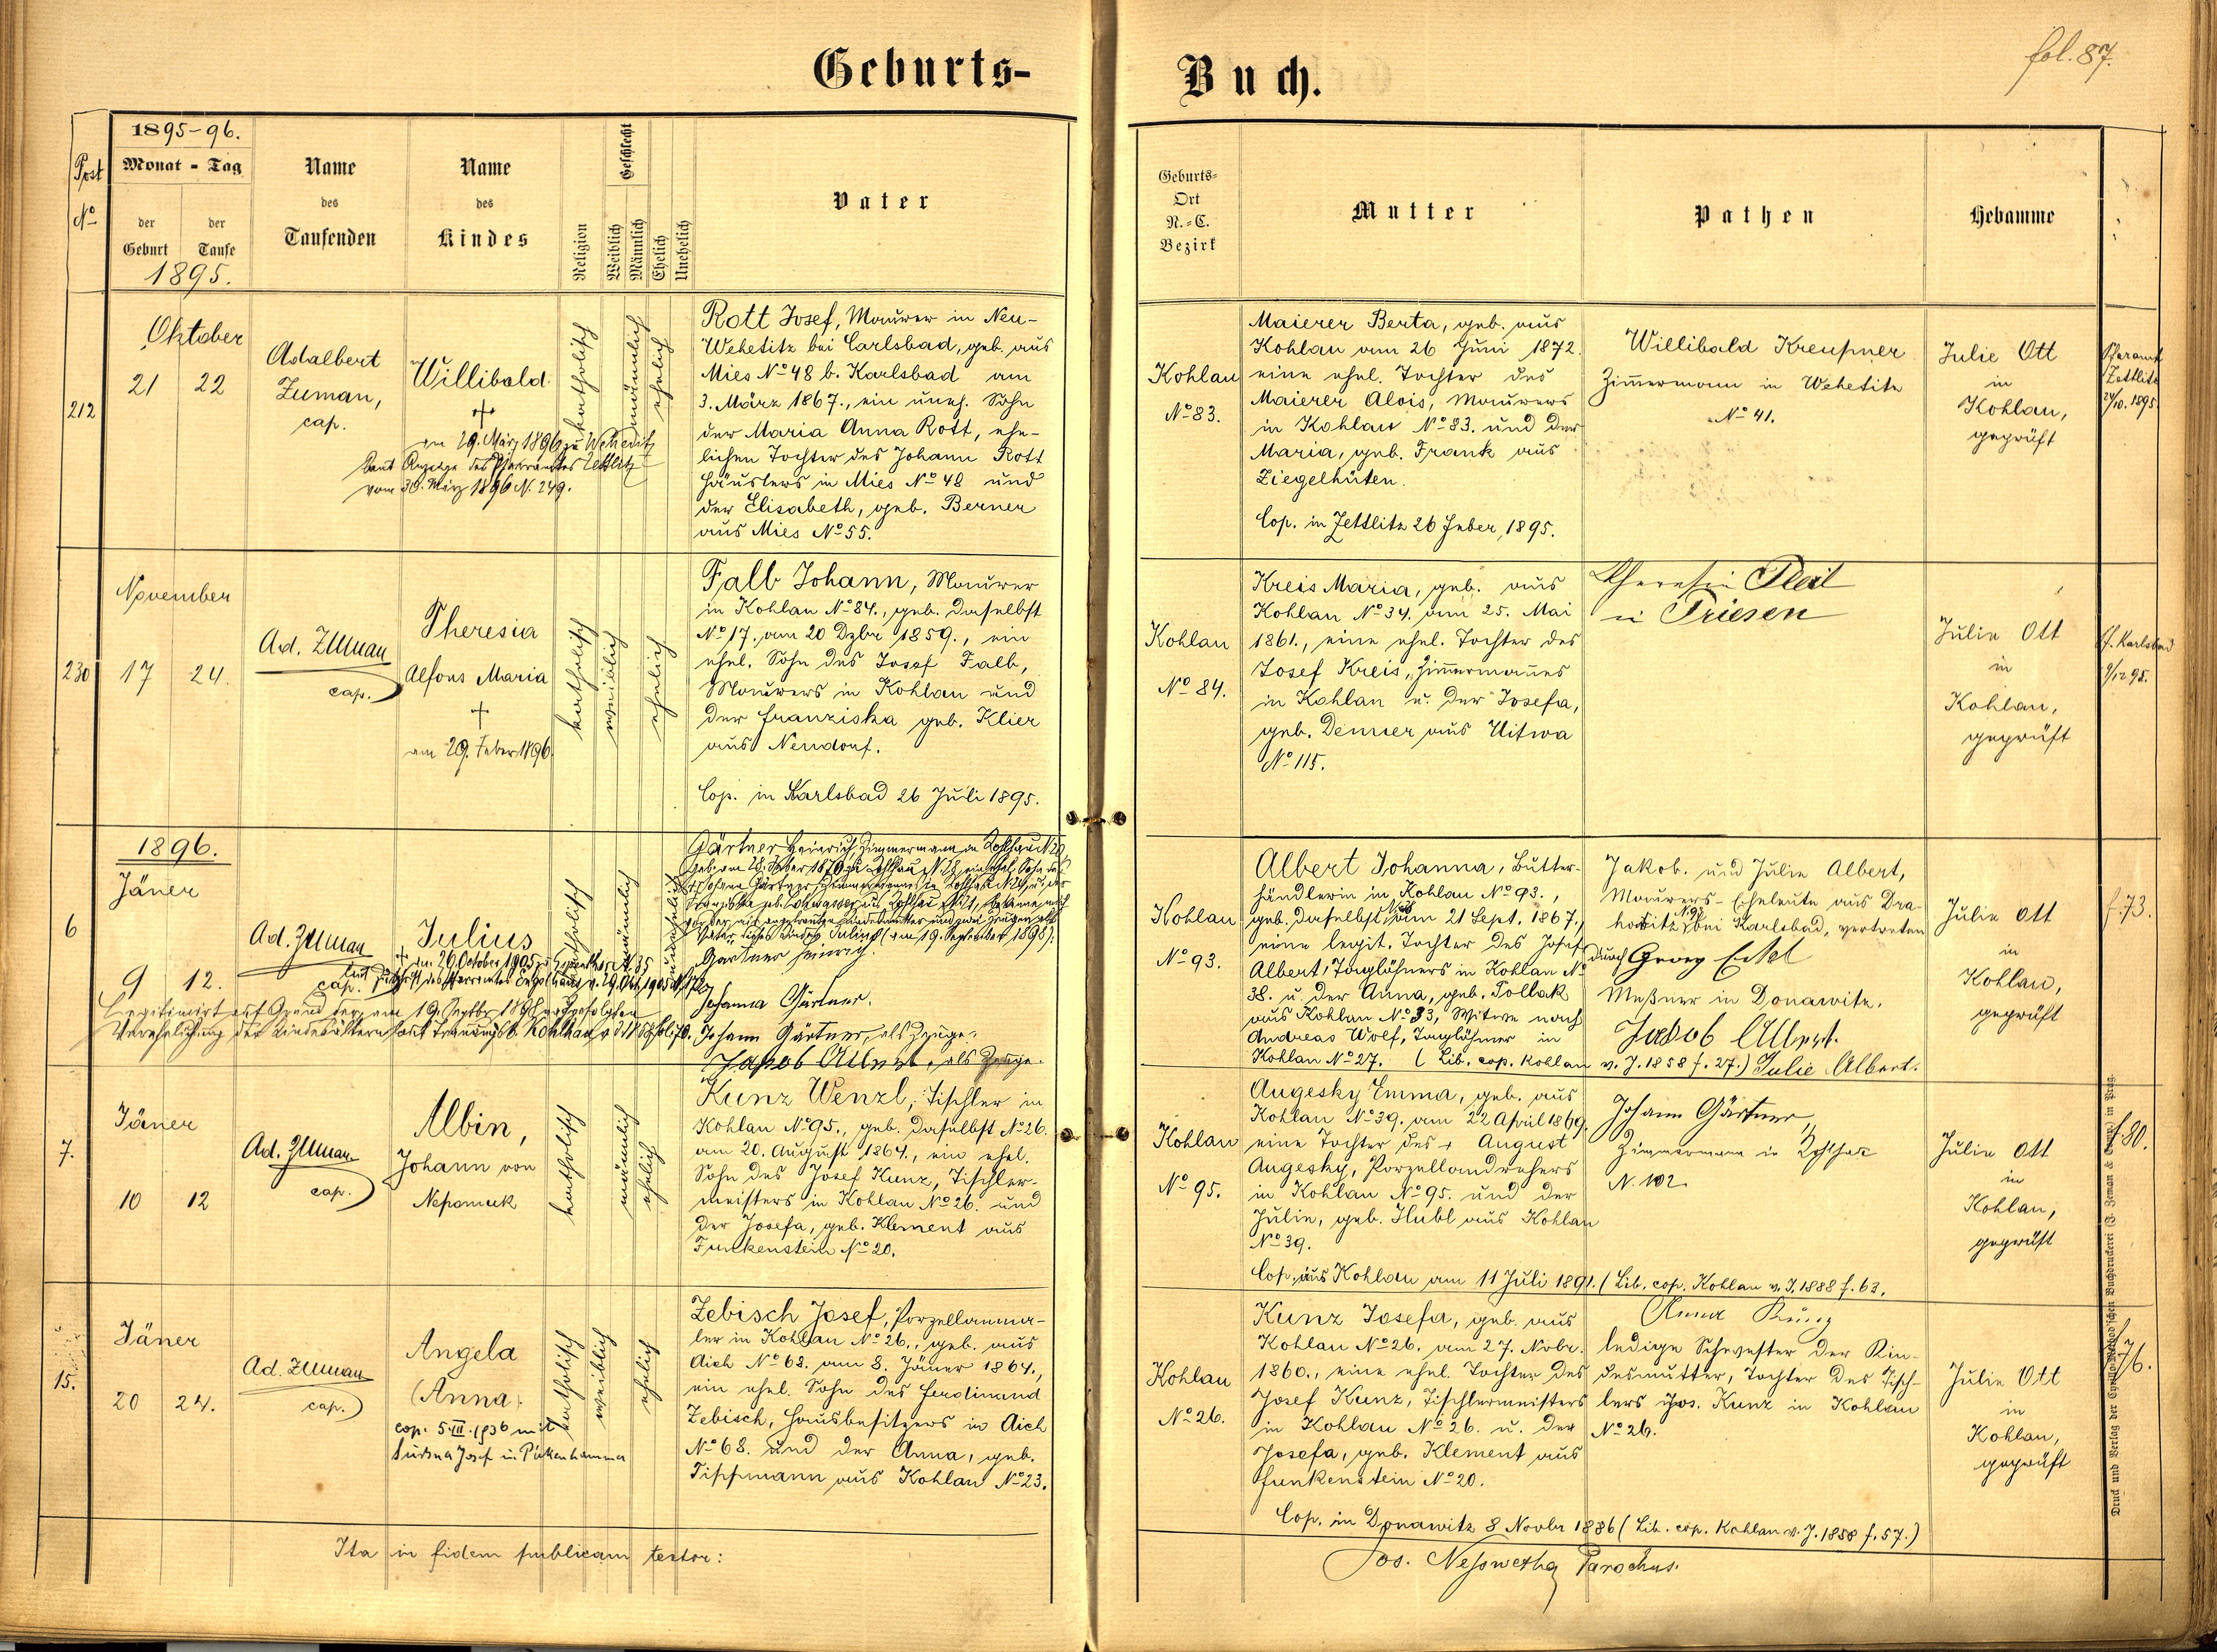 Geburts-
Buch.
fol. 87.
Post
No
1895-96.
Monat - Tag
der
Geburt
der
Taufe
1895.
Name
des
Taufenden
Name
des
Kindes
Religion
Geschlecht
Weiblich
Männlich
Ehelich
Unehelich
Vater
Geburts-
Ort
N.-C.
Bezirk
Mutter
Pathen
Hebamme
212
Oktober
21 22
Adalbert
Zuman,
cap.
Willibald.
am 29. März 1896 zu Weheditz
laut Anzeige des Pfarramtes Zettlitz
vom 30. März 1896 N. 249.
katholisch
männlich
ehelich
Rott Josef, Maurer in Neu-
Wehetitz bei Carlsbad, geb. aus
Mies No 48 b. Karlsbad am
3. März 1867., ein uneh. Sohn
der Maria Anna Rott, ehe-
lichen Tochter des Johann Rott
Häuslers in Mies No 48 und
der Elisabeth, geb. Berner
aus Mies No 55.
Kohlau
No 83.
Maierer Berta, geb. aus
Kohlau am 26 Juni 1872.
eine ehel. Tochter des
Maierer Alois, Maurers
in Kohlau No 83. und der
Maria, geb. Frank aus
Ziegelhüten.
Cop. in Zettlitz 26 Feber, 1895.
Willibald Kreußner
Zim̄ermann in Wehetitz
No 41.
Julie Ott
in
Kohlau,
geprüft
Pfaramt
Zettlitz
24/10. 1895.
230
November
17 24.
Ad. Zuman
cap.
Theresia
Alfons Maria
†
am 29. Feber 1896.
katholisch
weiblich
ehelich
Falb Johann, Maurer
in Kohlau No 84., geb. daselbst
No 17., am 20 Dzbr 1859., ein
ehel. Sohn des Josef Falb,
Maurers in Kohlau und
der Franziska geb. Klier
aus Neudorf.
Cop. in Karlsbad 26 Juli 1895.
Kohlau
No 84.
Kreis Maria, geb. aus
Kohlau No 34. am 25. Mai
1861., eine ehel. Tochter des
Josef Kreis, Zim̄ermanes
in Kohlau u. der Josefa,
geb. Denner aus Uitwa
No 115.
Theresia
in Triesen
Julie Ott
in
Kohlau,
geprüft
Pf. Karlsbad
9/12 95.
1896.
6
Jäner
9 12.
Ad. Zuman
cap.
Julius
† am 26. October 1905
Legitimirt auf Grund der am 19. Septbr 1898 erfolgten
Verehelichung der Kindeseltern laut Trauungsb. Kohlhau
katholisch
männlich
unehelich
Gärtner Heinrich, Zimmermann in Kohlhau N. 29
Vater dieses Kindes Julius (am 19. September 1898):
Gärtner Heinrich.
Johanna Gärtner.
Johann Gärtner, als Zeuge.
Jakob Albert, als Zeuge.
Kohlau
No 93.
Albert Johanna, Butter-
händlerin in Kohlau No 93.,
geb. daselbst am 21 Sept. 1867.,
eine legit. Tochter des Josef
Albert, Taglöhners in Kohlau No
38. u. der Anna, geb. Pollak
aus Kohlau No 33, Witwe nach
Andreas Wolf, Taglöhner in
Kohlau No 27. (Lib. cop. Kohlau v. J. 1858 f. 27.)
Jakob. und Julie Albert,
Maurers-Eheleute aus Dra-
howitz bei Karlsbad, vertreten
durch Georg Eckel
Meßner in Donawitz.
Jakob Albert.
Julie Albert.
Julie Ott
in
Kohlau,
geprüft
f. 73.
7.
Jäner
10 12
Ad. Zuman
cap.
Albin,
Johann von
Nepomuk
katholisch
männlich
ehelich
Kunz Wenzl, Tischler in
Kohlau No 95., geb. daselbst No 26.
am 20. August 1864., ein ehel.
Sohn des Josef Kunz, Tischler-
meisters in Kohlau No 26. und
der Josefa, geb. Klement aus
Funkenstein No 20.
Kohlau
No 95.
Augesky Emma, geb. aus
Kohlau No 39. am 22 April 1869.
eine Tochter des † August
Augesky, Porzellandrehers
in Kohlau No 95. und der
Julie, geb. Hubl aus Kohlau
No 39.
Cop. aus Kohlau am 11 Juli 1891. (Lib. cop. Kohlau v. J. 1888 f. 63.
Johann Gärtner,
Zimmermann in Kohlhau
N. 102.
Julie Ott
in
Kohlau,
geprüft
f. 80.
15.
Jäner
20 24.
Ad. Zuman
cap.
Angela
(Anna)
cop. 5. III. 1936 mit
Josef in Pirkenhammer
katholisch
weiblich
ehelich
Zebisch Josef, Porzellanma-
ler in Kohlau No 26., geb. aus
Aich No 68. am 8. Jäner 1864.,
ein ehel. Sohn des Ferdinand
Zebisch, Hausbesitzers in Aich
No 68. und der Anna, geb.
Tippmann aus Kohlau No 23.
Kohlau
No 26.
Kunz Josefa, geb. aus
Kohlau No 26. am 27. Novbr.
1860., eine ehel. Tochter des
Josef Kunz, Tischlermeisters
in Kohlau No 26. u. der
Josefa, geb. Klement aus
Funkenstein No 20.
Cop. in Donawitz 8 Novbr 1886 (Lib. cop. Kohlau v. J. 1858 f. 57.)
Anna Kunz
ledige Schwester der Kin-
desmutter, Tochter des Tisch-
lers Jos. Kunz in Kohlau
No 26.
Julie Ott
in
Kohlau,
geprüft
f. 76.
Ita in fidem publicam testor:
Jos. Neßwetha Parochus.
Druck und Verlag der Cyrillo-Method'schen Buchdruckerei (J. Zeman & Comp.) in Prag.